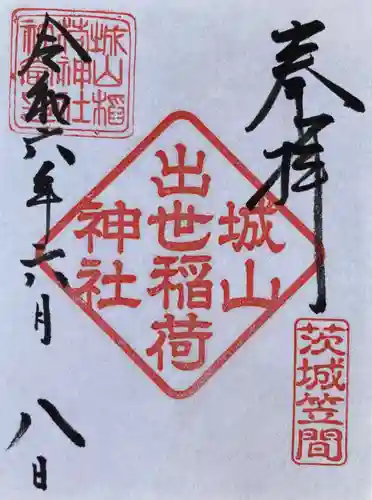 奉拝
城山
出世稲荷
神社
茨城笠間
城山稻
荷神社
令和六年六月八日